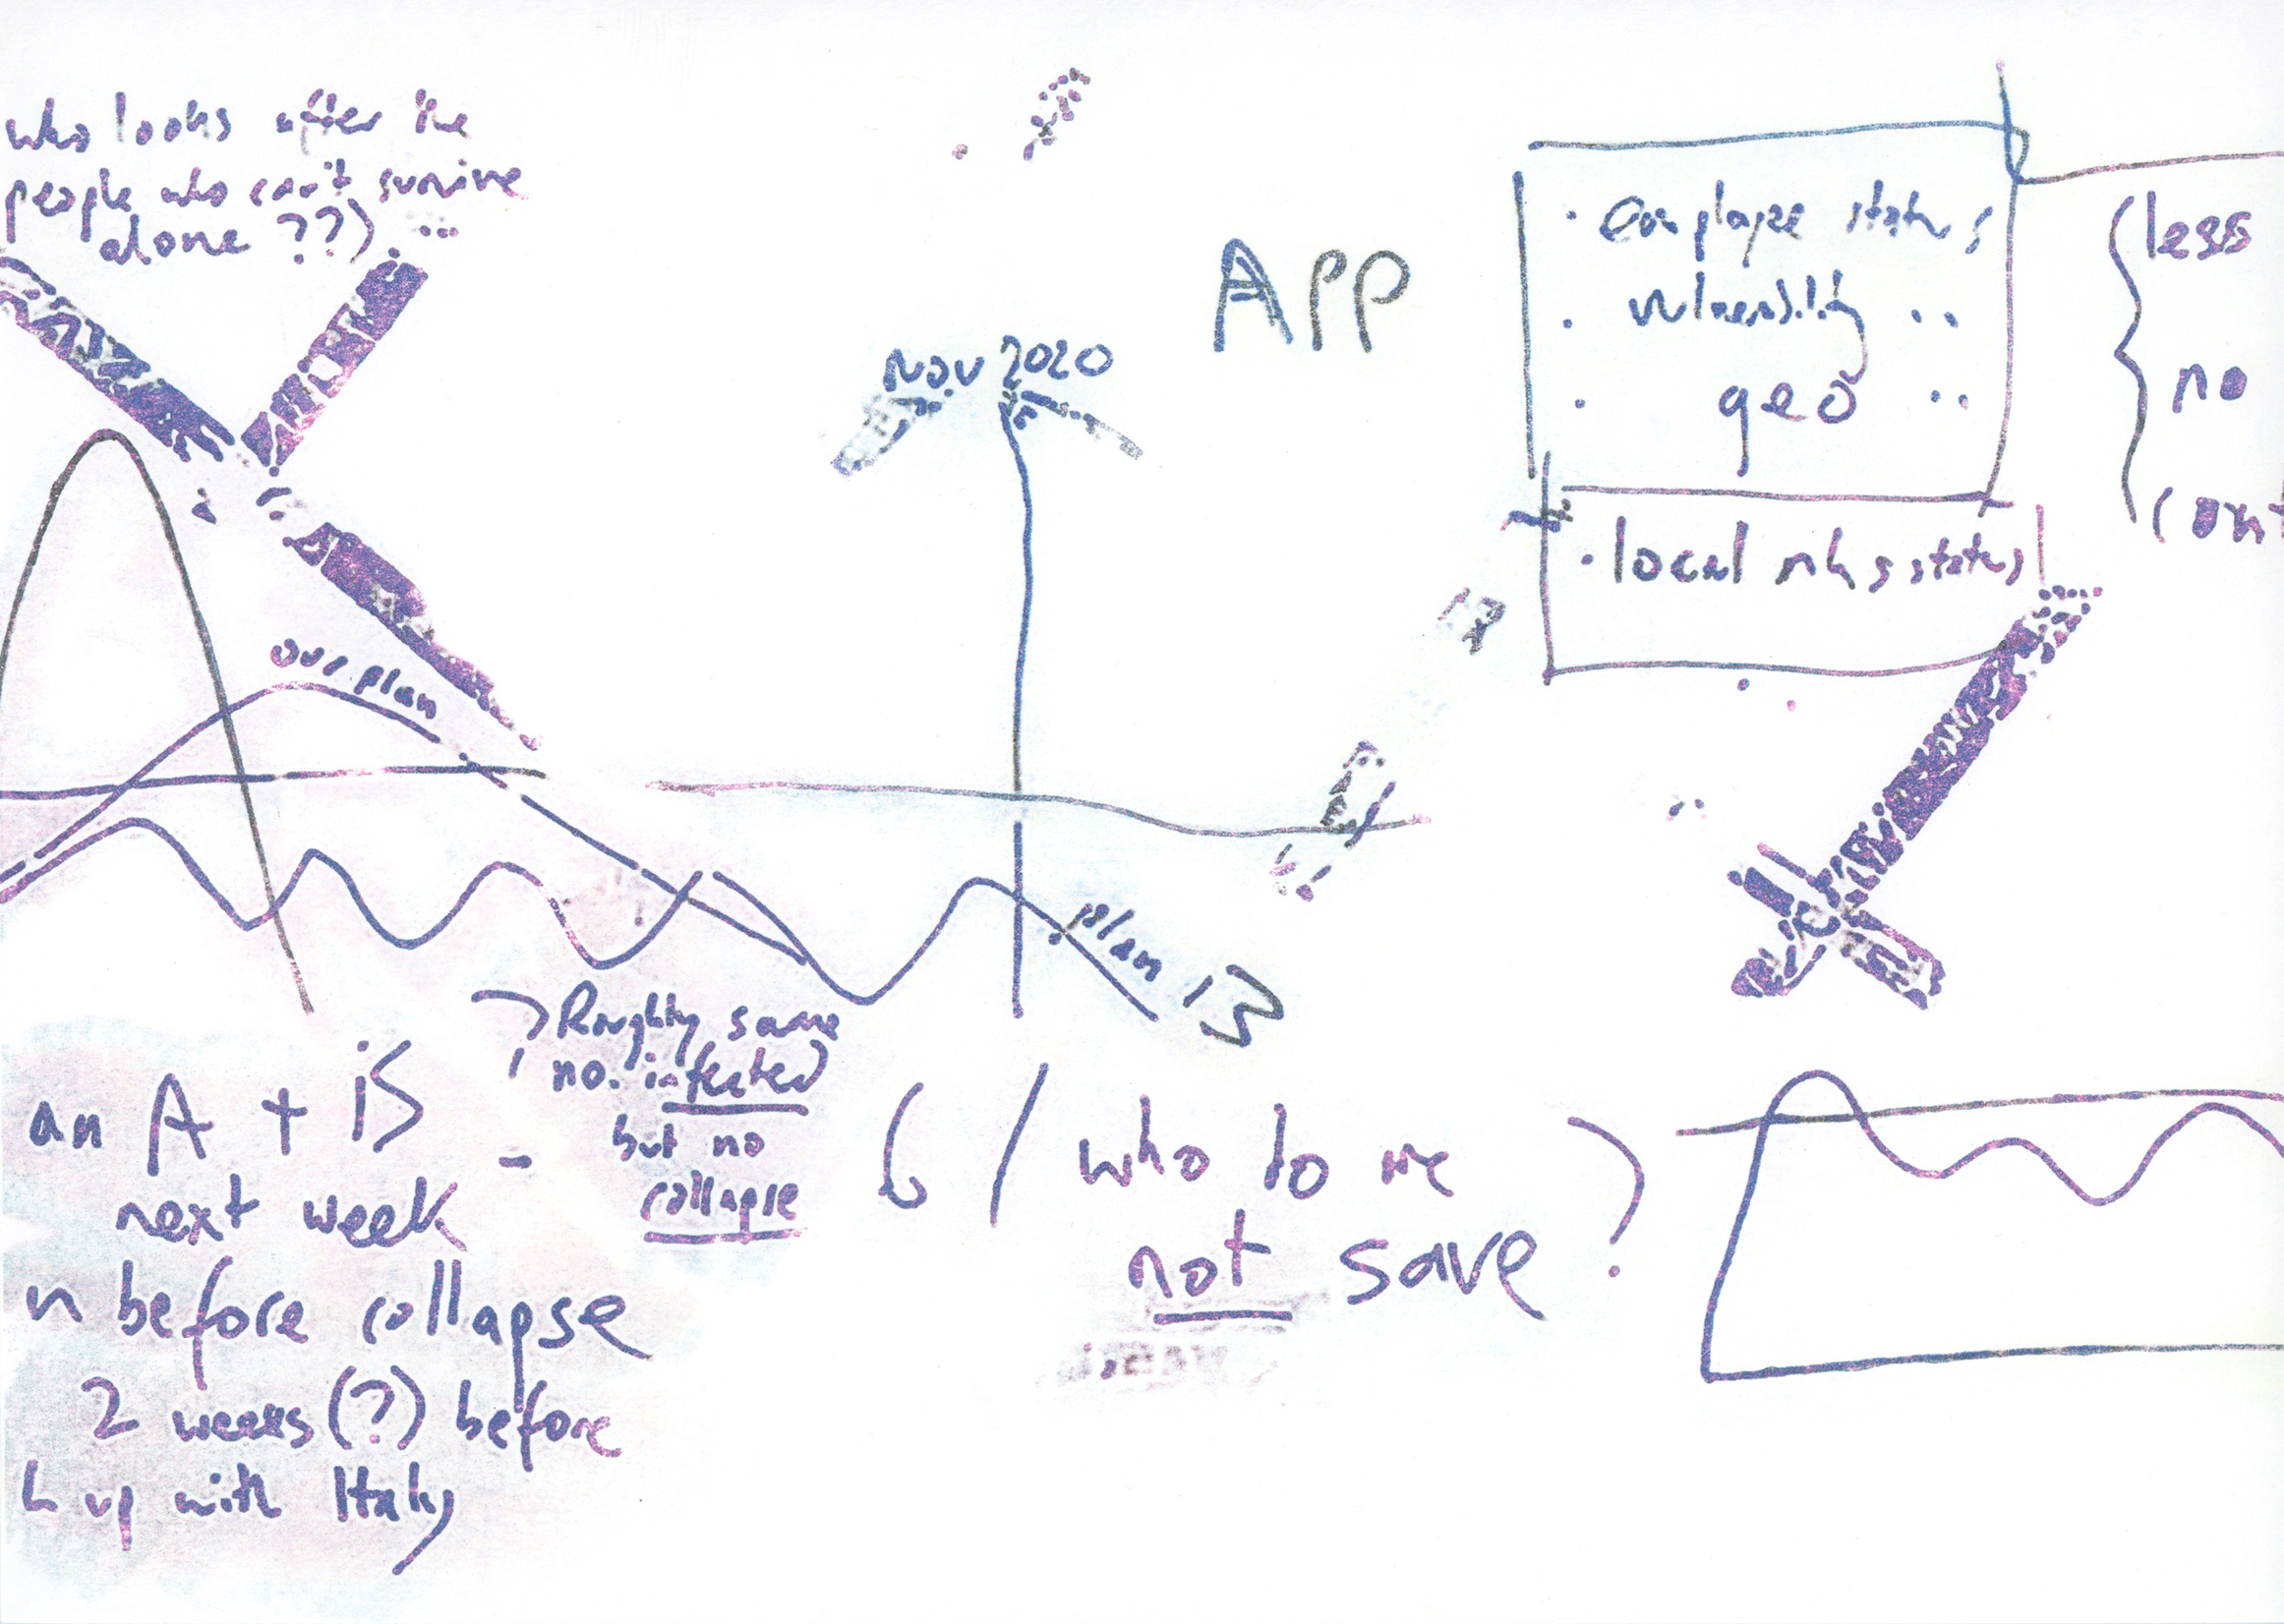 who looks after the
people who can't survive
alone ??)
our plan
Nov 2020
APP
· employee status
· vulnerability ··
· geo ··
· local nhs status
(less
no
plan B
Roughly same
no. infected
but no
collapse
an A + is
next week -
before collapse
2 weeks (?) before
up with Italy
6/ who do we
not save ?